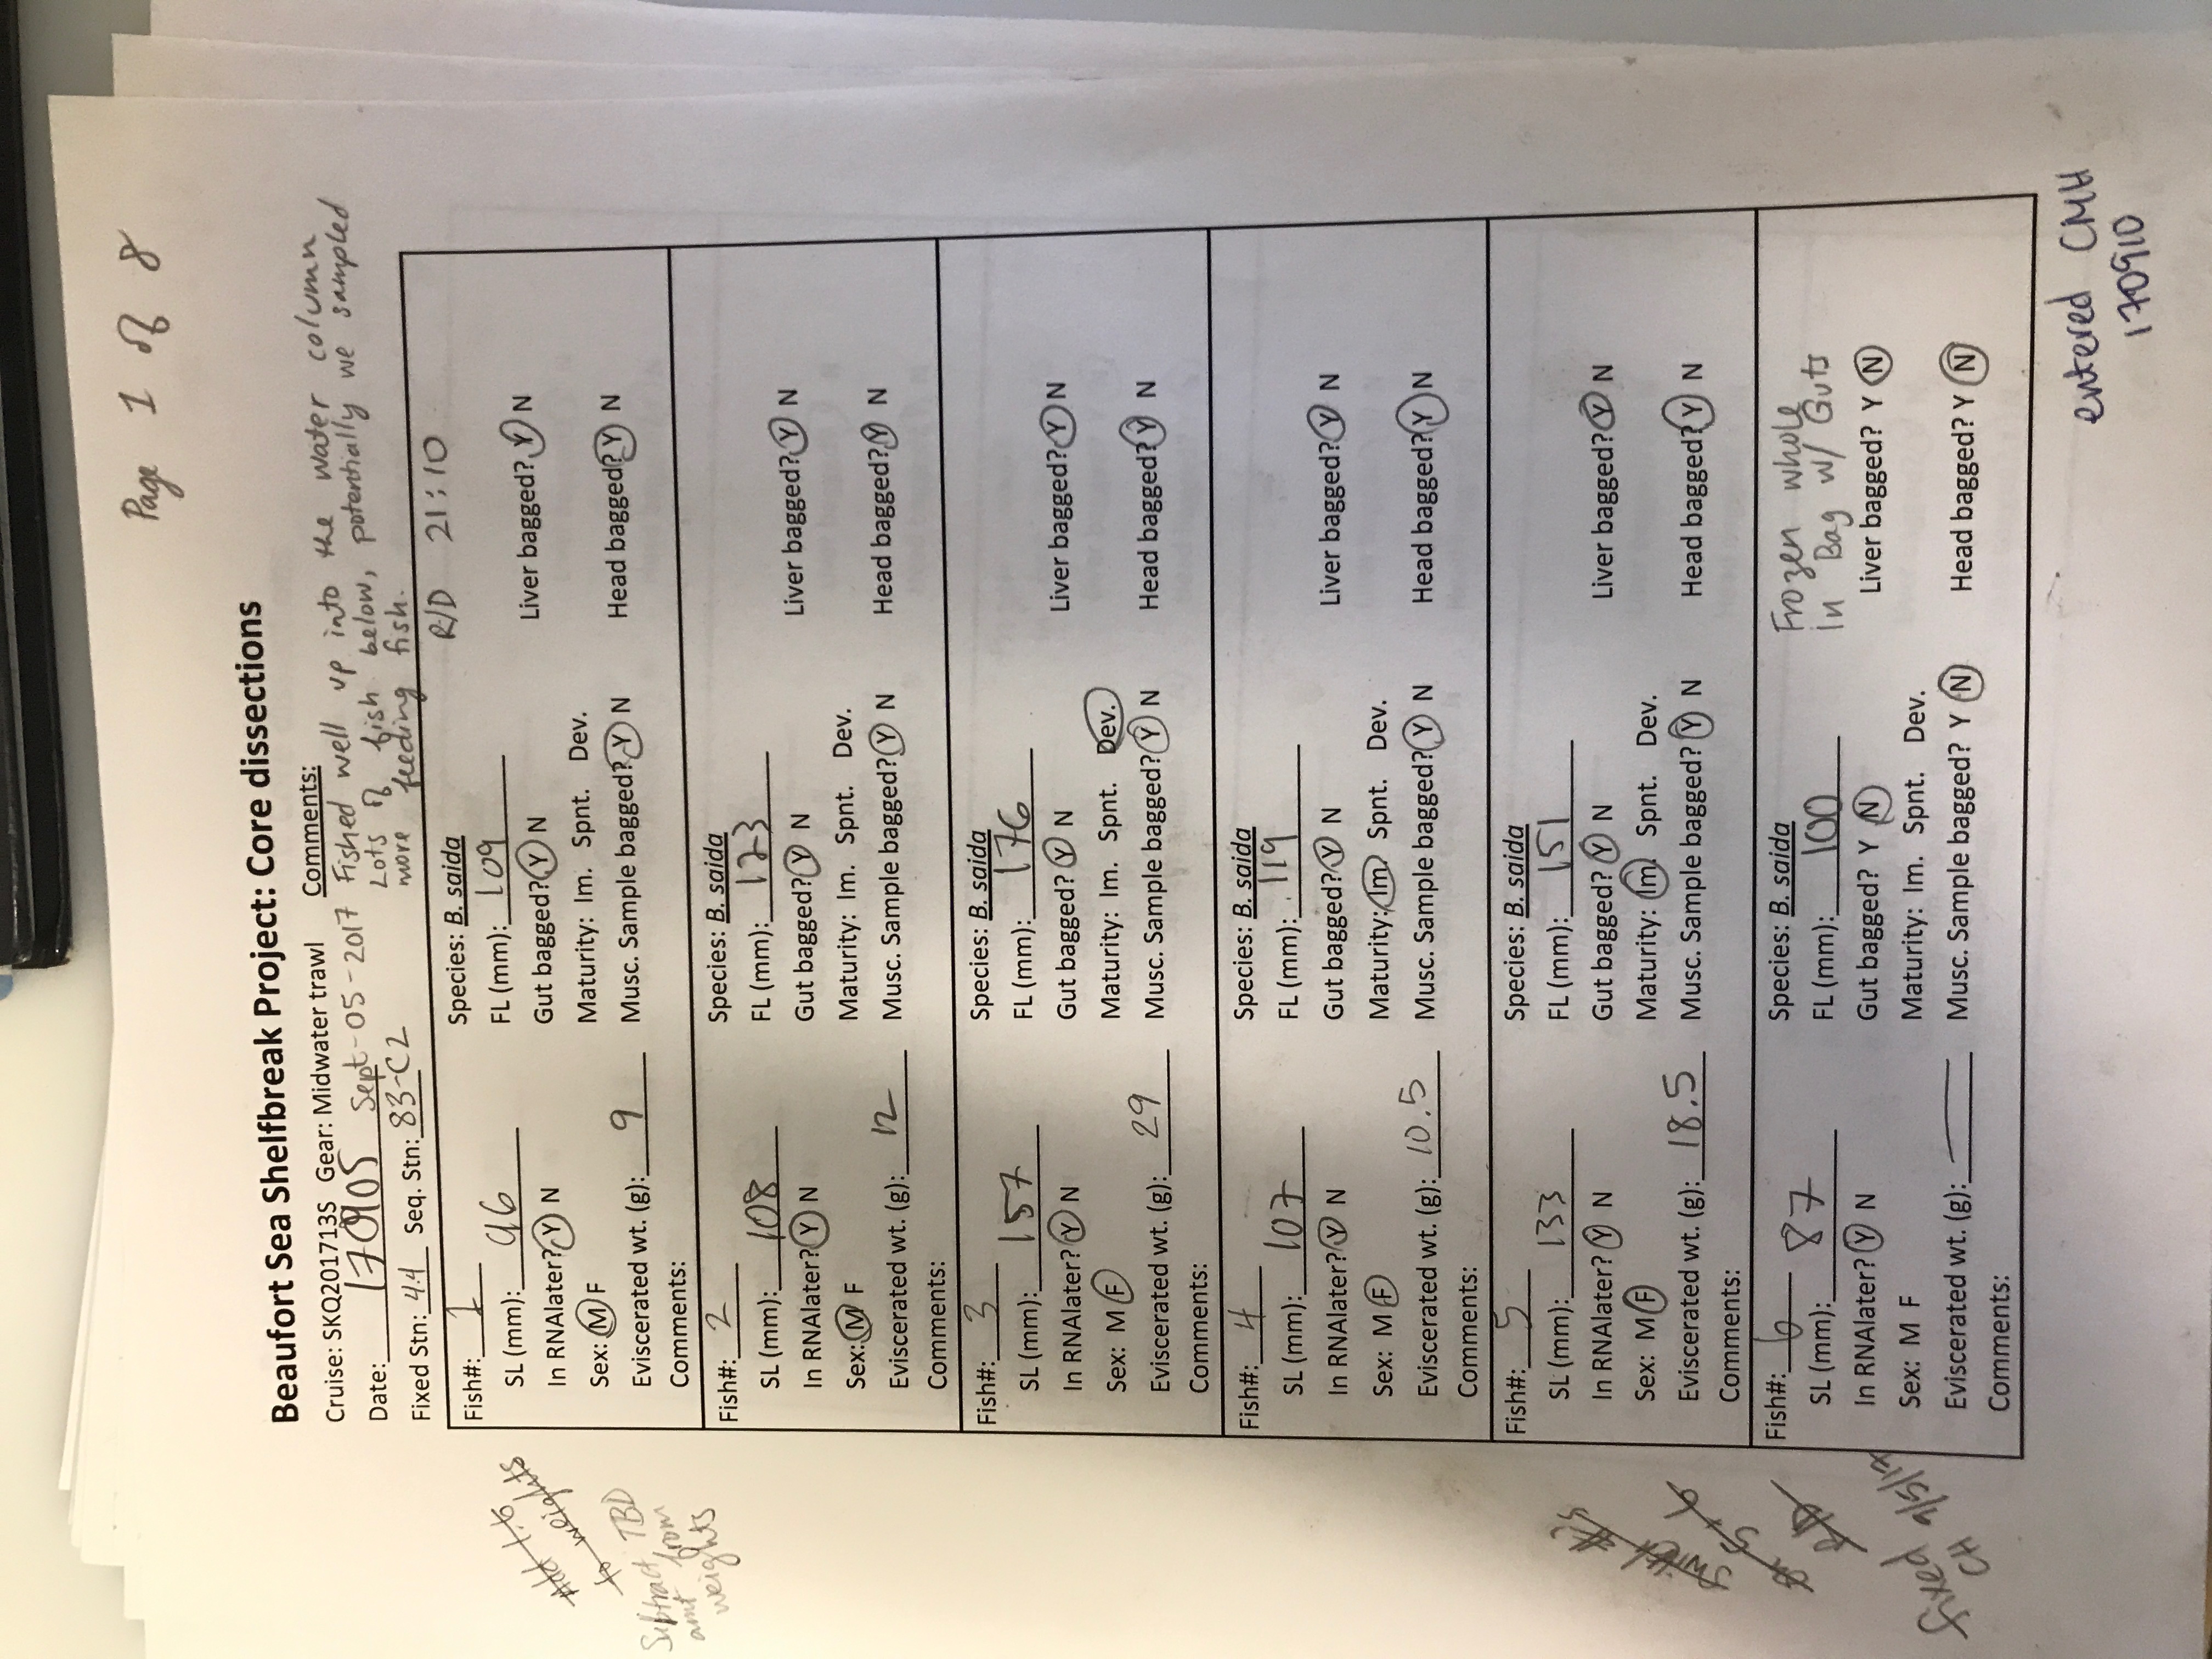 Page 1 of 8
Beaufort Sea Shelfbreak Project: Core dissections
Cruise: SKQ201713S Gear: Midwater trawl Comments:
Date: 170905 Sept-05-2017 Fished well up into the water column
Lots of fish below, potentially we sampled
Fixed Stn: 4.4 Seq. Stn: 83-C2 more feeding fish.
R/D 21:10
Add 1.6
to weights
Subtract TBD
amt from
weights
Fish#: 1 Species: B. saida
SL (mm): 96 FL (mm): 109
In RNAlater? Y N Gut bagged? Y N Liver bagged? Y N
Sex: M F Maturity: Im. Spnt. Dev.
Eviscerated wt. (g): 9 Musc. Sample bagged? Y N Head bagged? Y N
Comments:
Fish#: 2 Species: B. saida
SL (mm): 108 FL (mm): 123
In RNAlater? Y N Gut bagged? Y N Liver bagged? Y N
Sex: M F Maturity: Im. Spnt. Dev.
Eviscerated wt. (g): 12 Musc. Sample bagged? Y N Head bagged? Y N
Comments:
Fish#: 3 Species: B. saida
SL (mm): 157 FL (mm): 176
In RNAlater? Y N Gut bagged? Y N Liver bagged? Y N
Sex: M F Maturity: Im. Spnt. Dev.
Eviscerated wt. (g): 29 Musc. Sample bagged? Y N Head bagged? Y N
Comments:
Fish#: 4 Species: B. saida
SL (mm): 107 FL (mm): 119
In RNAlater? Y N Gut bagged? Y N Liver bagged? Y N
Sex: M F Maturity: Im. Spnt. Dev.
Eviscerated wt. (g): 10.5 Musc. Sample bagged? Y N Head bagged? Y N
Comments:
Fish#: 5 Species: B. saida
SL (mm): 133 FL (mm): 151
In RNAlater? Y N Gut bagged? Y N Liver bagged? Y N
Sex: M F Maturity: Im. Spnt. Dev.
Eviscerated wt. (g): 18.5 Musc. Sample bagged? Y N Head bagged? Y N
Comments:
Switch #'s
5 + 6
R/D
fixed 9/5/17
CH
Fish#: 6 Species: B. saida Frozen whole
SL (mm): 87 FL (mm): 100 in Bag w/ Guts
In RNAlater? Y N Gut bagged? Y N Liver bagged? Y N
Sex: M F Maturity: Im. Spnt. Dev.
Eviscerated wt. (g): — Musc. Sample bagged? Y N Head bagged? Y N
Comments:
entered CMH
170910